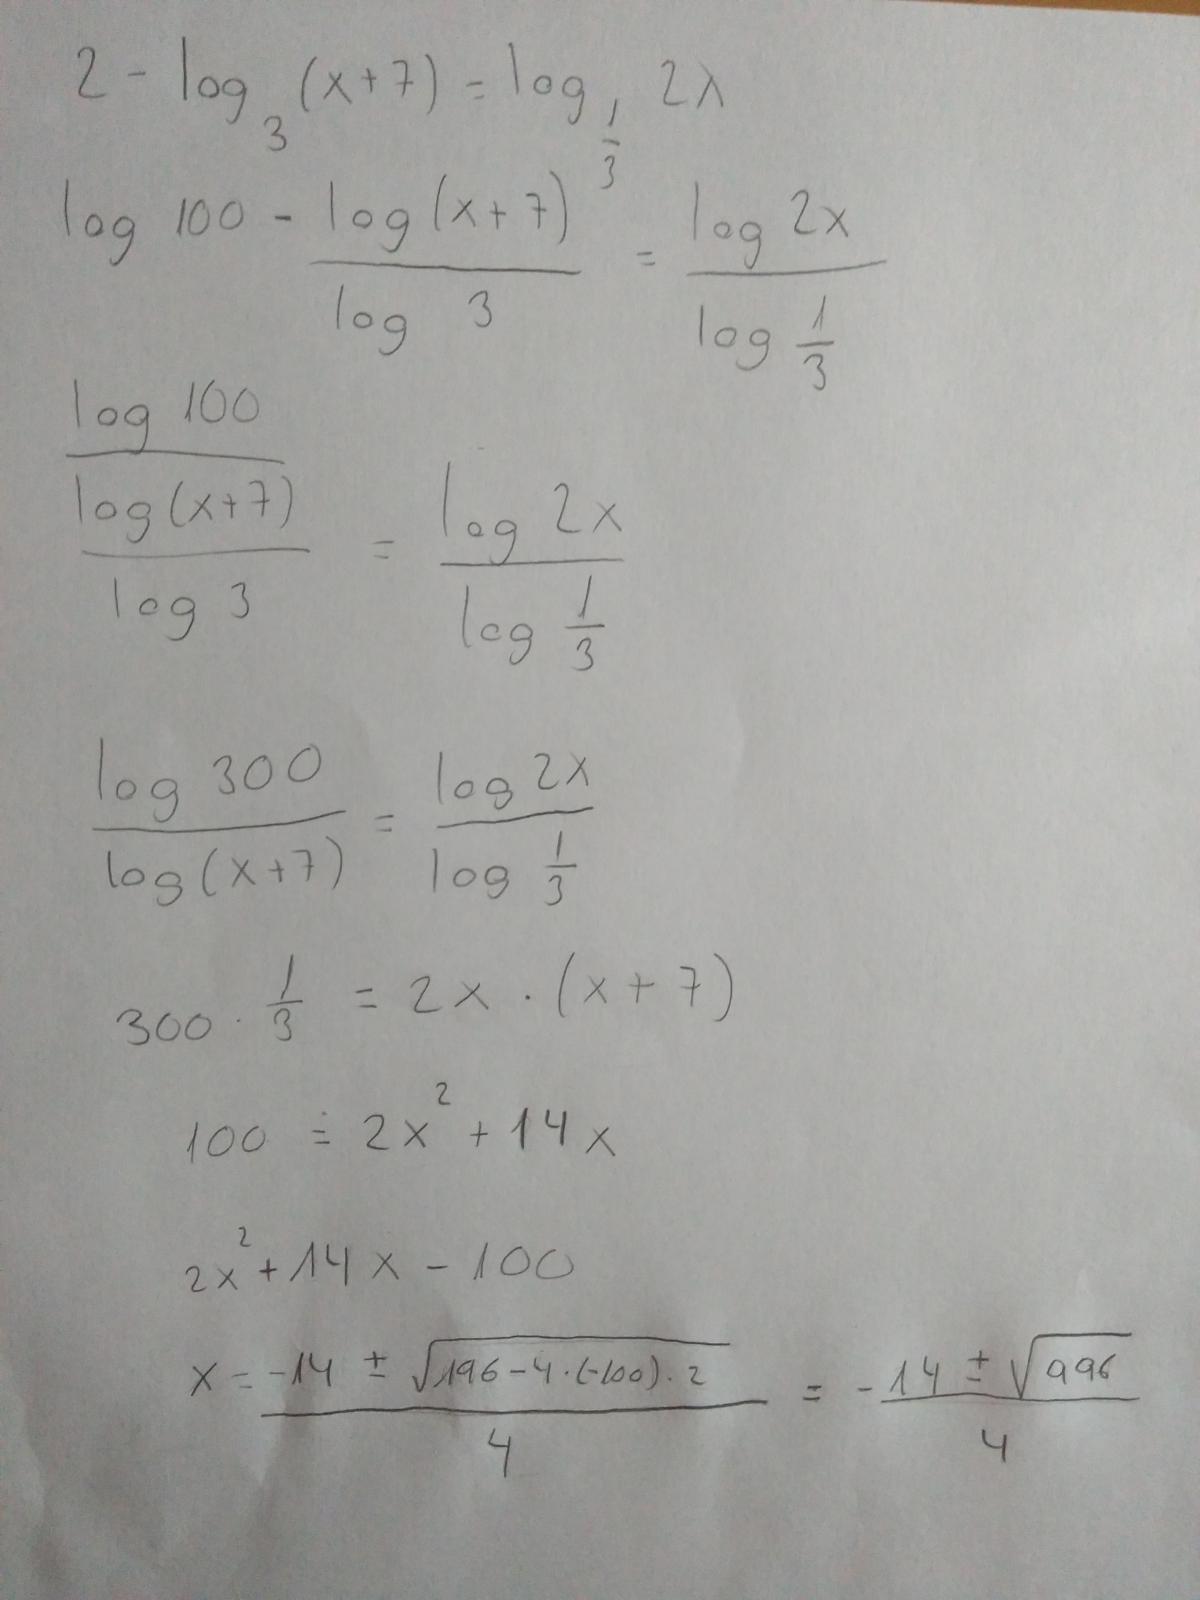 2 - log₃ (x+7) = log_{1/3} 2x
log 100 - log(x+7)/log 3 = log 2x/log 1/3
log 100/log(x+7)/log 3 = log 2x/log 1/3
log 300/log(x+7) = log 2x/log 1/3
300 · 1/3 = 2x · (x+7)
100 = 2x² + 14x
2x² + 14x - 100
x = -14 ± √196-4·(-100)·2/4 = -14 ± √996/4